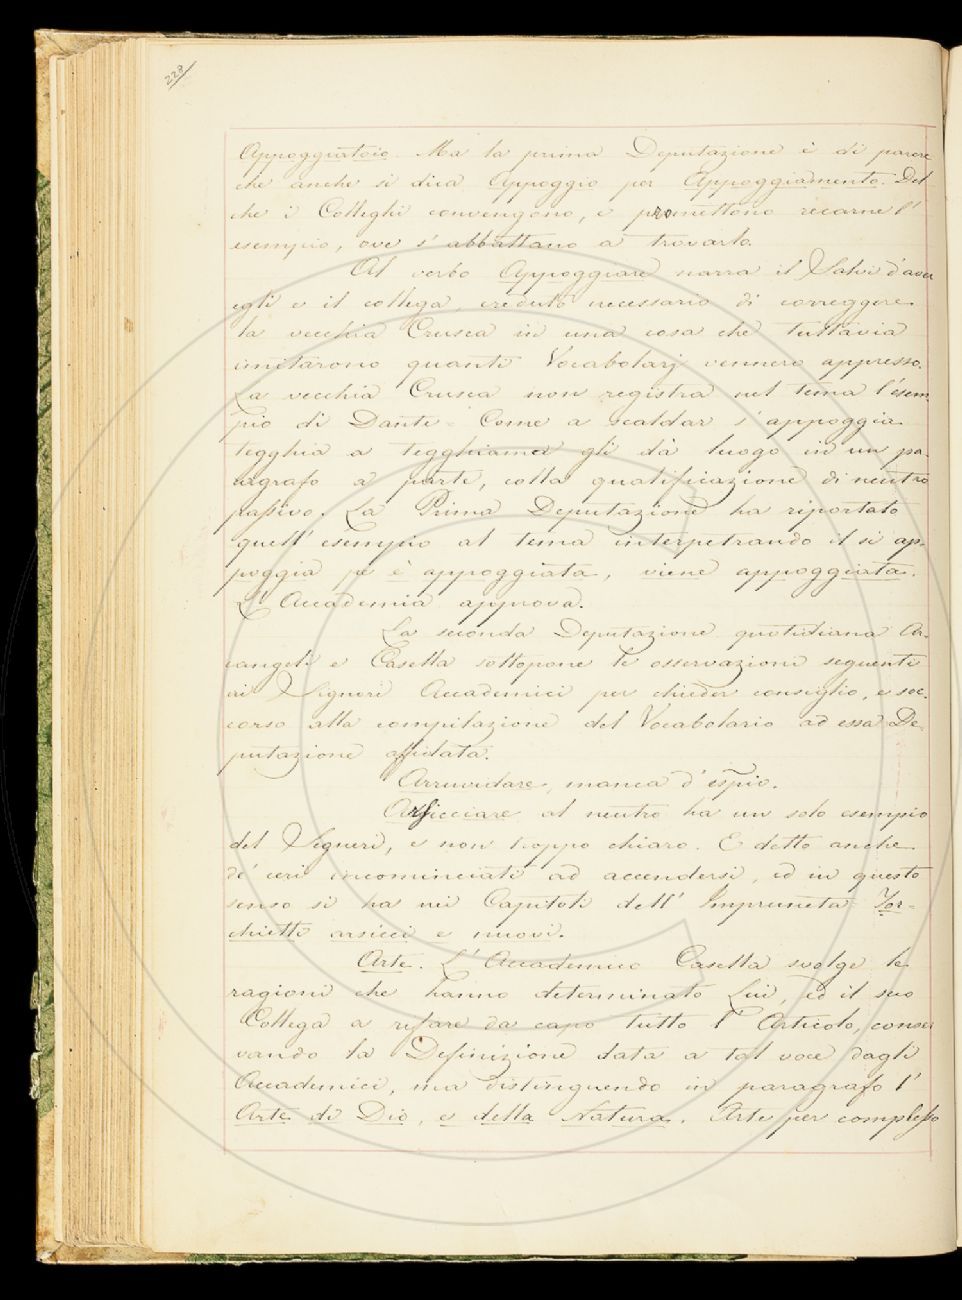 228
Appoggiatoio. Ma la prima Deputazione è di parere
che anche si dica Appoggio per Appoggiamento. Del
che i Colleghi convengono, e promettono recarne l'
esempio, ove s'abbattano a trovarlo.
Al verbo Appoggiare narra il Salvi d'aver
egli e il collega, creduto necessario di correggere
la vecchia Crusca in una cosa che tuttavia
imitarono quanti Vocabolarj vennero appresso.
La vecchia Crusca non registra nel tema l'esem-
pio di Dante: Come a scaldar s'appoggia
tegghia a tegghia ma gli dà luogo in un pa-
ragrafo a parte, colla qualificazione di neutro
passivo. La Prima Deputazione ha riportato
quell'esempio al tema interpetrando il si ap-
poggia per è appoggiata, viene appoggiata.
L'Accademia approva.
La seconda Deputazione quotidiana Ar-
cangeli e Casella sottopone le osservazioni seguenti
ai Signori Accademici per chieder consiglio, e soc-
corso alla compilazione del Vocabolario ad essa De-
putazione affidata.
Arruvidare, manca d'espio.
Arsicciare al neutro ha un solo esempio
del Segneri, e non troppo chiaro. È detto anche
de' ceri incominciati ad accendersi, ed in questo
senso si ha nei Capitoli dell'Impruneta: Tor-
chietti arsicci e nuovi.
Arte. L'Accademico Casella svolge le
ragioni che hanno determinato Lui, ed il suo
Collega a rifare da capo tutto l'Articolo, conser
vando la Definizione data a tal voce dagli
Accademici, ma distinguendo in paragrafo l'
Arte di Dio, e della Natura. Arte per complesso